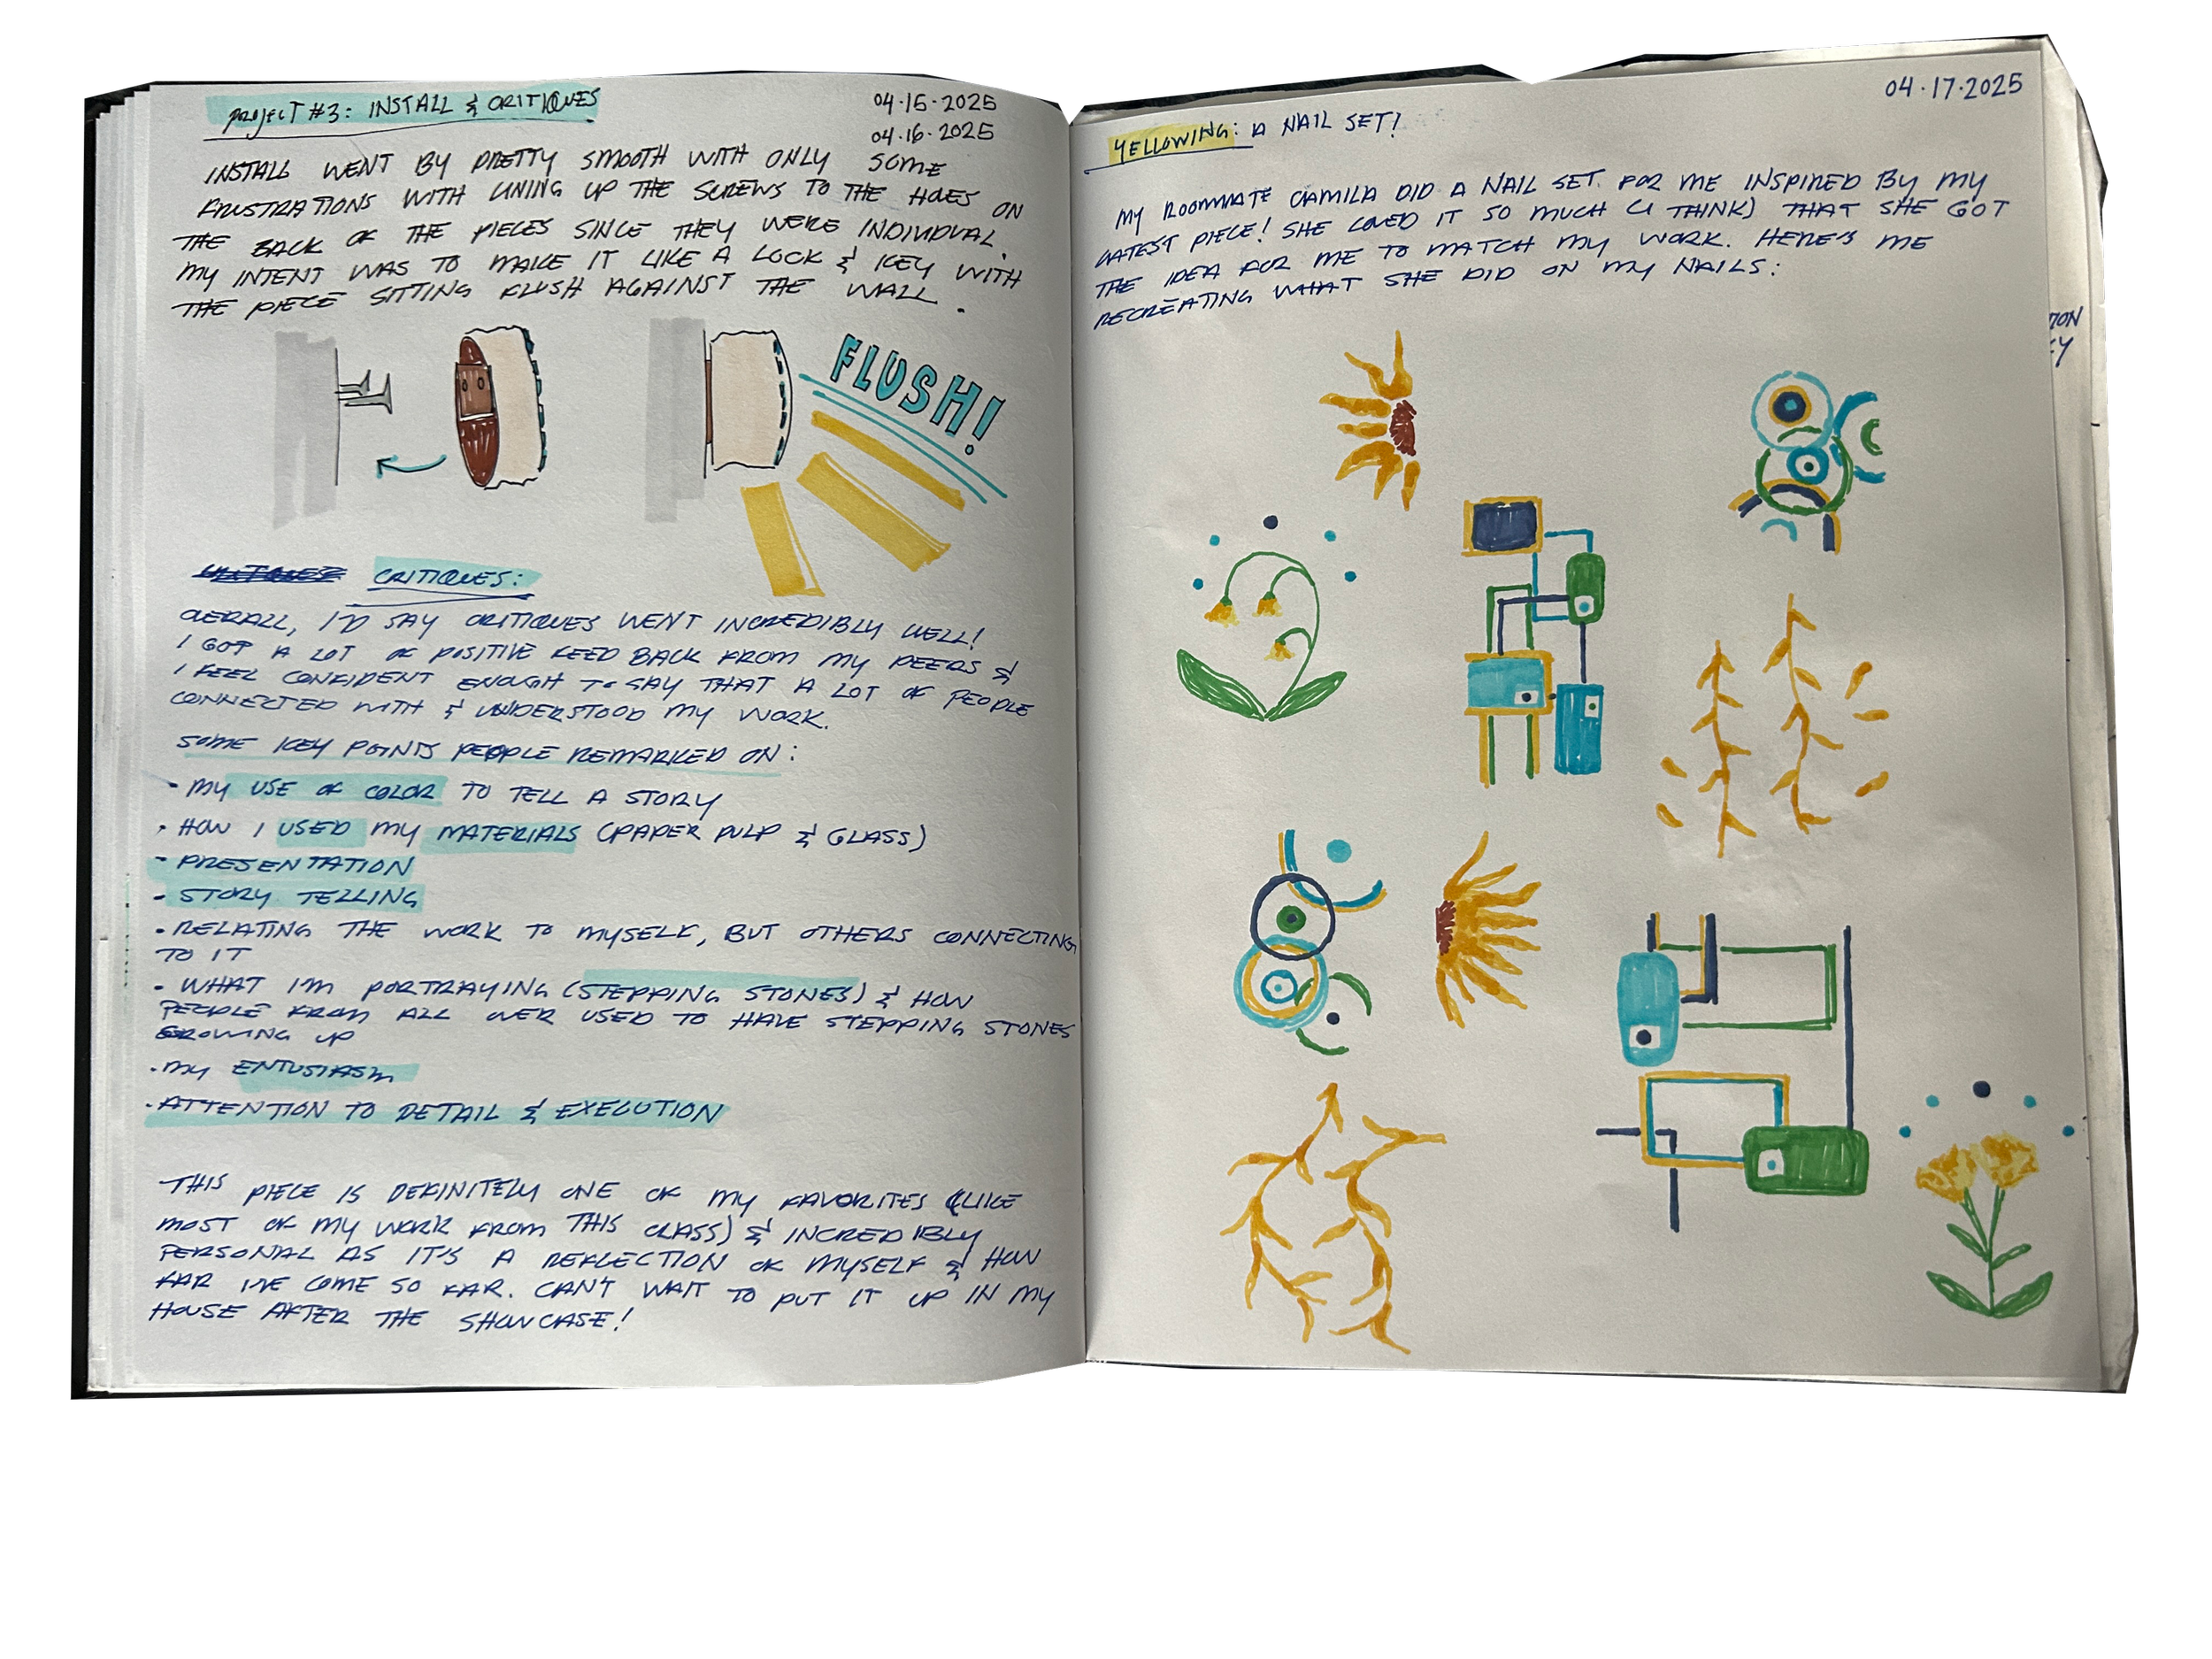 PROJECT #3: INSTALL & CRITIQUES
04.15.2025
04.16.2025
INSTALL WENT BY PRETTY SMOOTH WITH ONLY SOME
FRUSTRATIONS WITH LINING UP THE SCREWS TO THE HOLES ON
THE BACK OF THE PIECES SINCE THEY WERE INDIVIDUAL.
MY INTENT WAS TO MAKE IT LIKE A LOCK & KEY WITH
THE PIECE SITTING FLUSH AGAINST THE WALL.
FLUSH!
CRITIQUES:
OVERALL, I'D SAY CRITIQUES WENT INCREDIBLY WELL!
I GOT A LOT OF POSITIVE FEED BACK FROM MY PEERS &
I FEEL CONFIDENT ENOUGH TO SAY THAT A LOT OF PEOPLE
CONNECTED WITH & UNDERSTOOD MY WORK.
SOME KEY POINTS PEOPLE REMARKED ON:
• MY USE OF COLOR TO TELL A STORY
• HOW I USED MY MATERIALS (PAPER PULP & GLASS)
- PRESENTATION
- STORY TELLING
• RELATING THE WORK TO MYSELF, BUT OTHERS CONNECTING
TO IT
• WHAT I'M PORTRAYING (STEPPING STONES) & HOW
PEOPLE FROM ALL OVER USED TO HAVE STEPPING STONES
GROWING UP
• MY ENTUSIASM
• ATTENTION TO DETAIL & EXECUTION
THIS PIECE IS DEFINITELY ONE OF MY FAVORITES (LIKE
MOST OF MY WORK FROM THIS CLASS) & INCREDIBLY
PERSONAL AS IT'S A REFLECTION OF MYSELF & HOW
FAR I'VE COME SO FAR. CAN'T WAIT TO PUT IT UP IN MY
HOUSE AFTER THE SHOWCASE!
04.17.2025
YELLOWING: A NAIL SET!
MY ROOMMATE CAMILA DID A NAIL SET FOR ME INSPIRED BY MY
LATEST PIECE! SHE LOVED IT SO MUCH (I THINK) THAT SHE GOT
THE IDEA FOR ME TO MATCH MY WORK. HERE'S ME
RECREATING WHAT SHE DID ON MY NAILS: